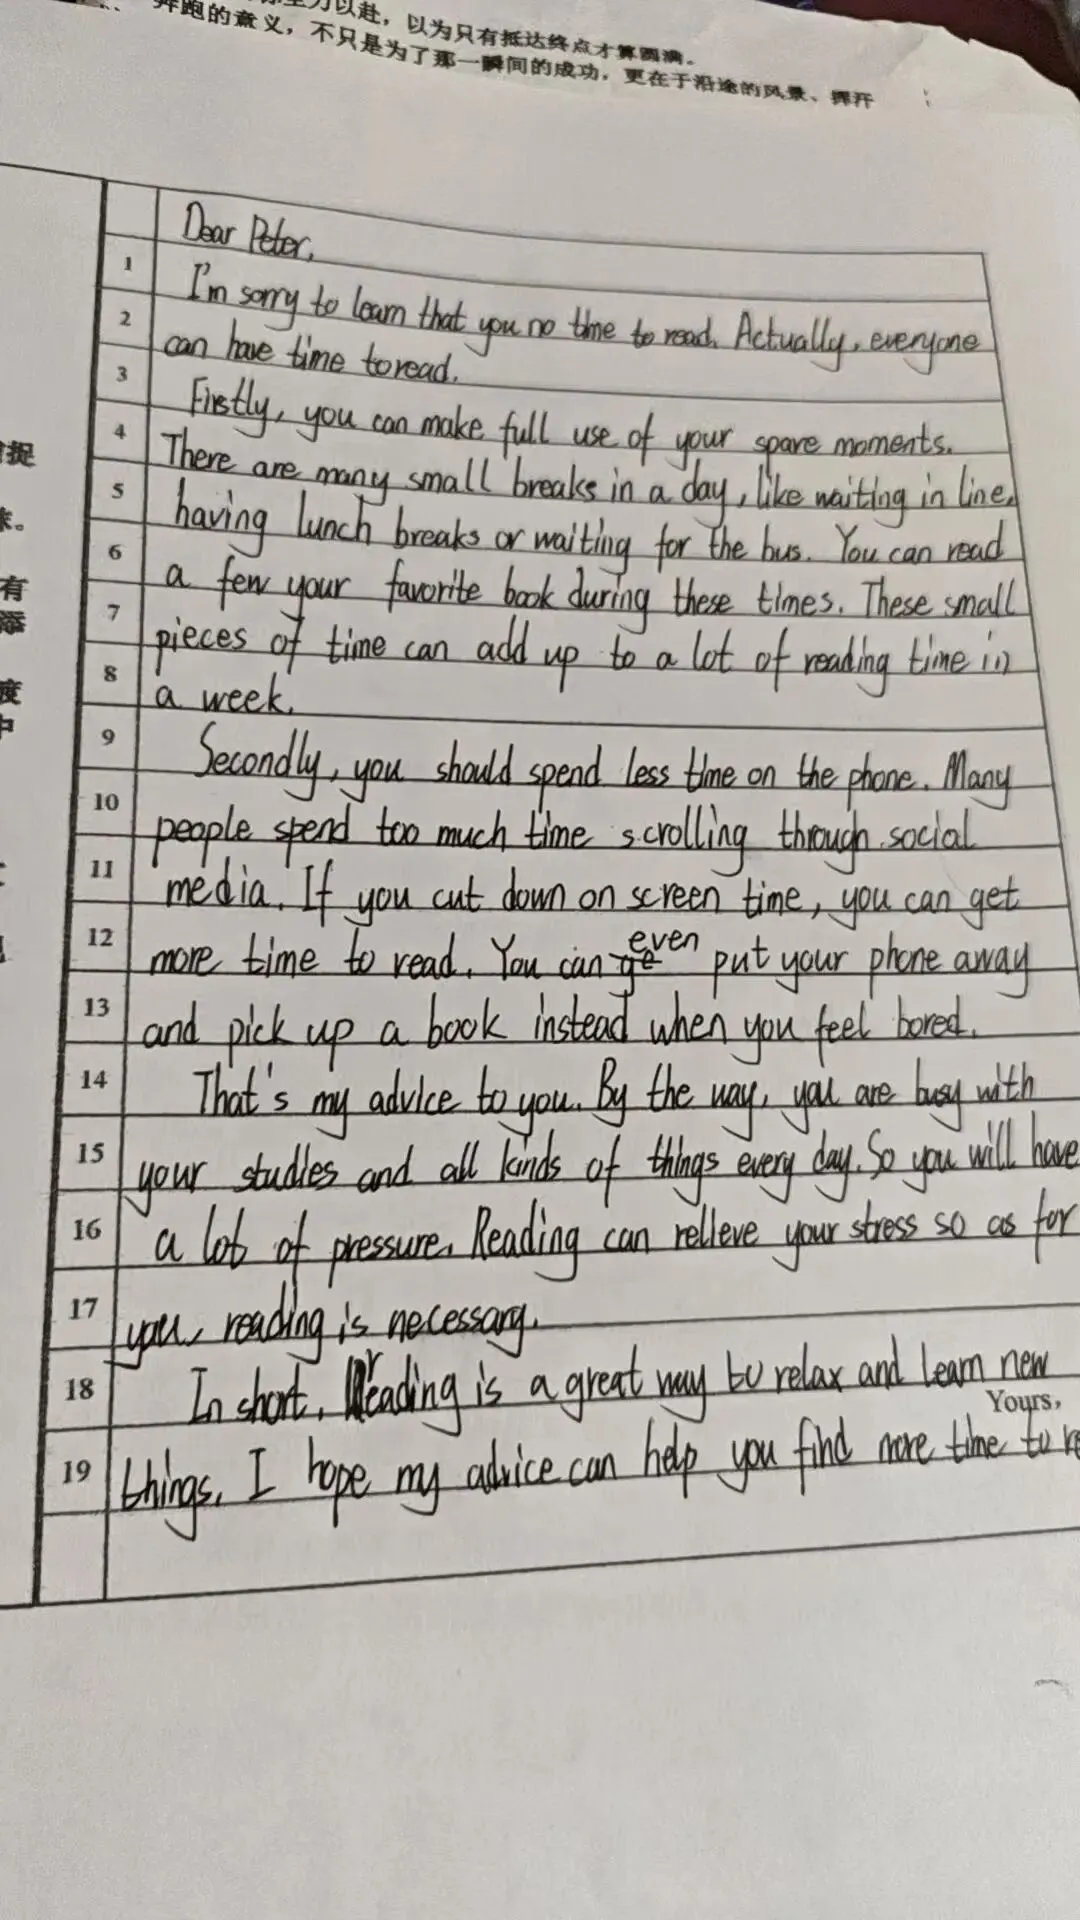 力以赴，以为只有抵达终点才算圆满。
奔跑的意义，不只是为了那一瞬间的成功，更在于沿途的风景、挥汗
捉
末。
有
添
度
中
Dear Peter,
1 I'm sorry to learn that you no time to read. Actually, everyone
2 can have time to read.
3 Firstly, you can make full use of your spare moments.
4 There are many small breaks in a day, like waiting in line,
5 having lunch breaks or waiting for the bus. You can read
6 a few your favorite book during these times. These small
7 pieces of time can add up to a lot of reading time in
8 a week.
9 Secondly, you should spend less time on the phone. Many
10 people spend too much time scrolling through social
11 media. If you cut down on screen time, you can get
12 more time to read. You can even put your phone away
13 and pick up a book instead when you feel bored.
14 That's my advice to you. By the way, you are busy with
15 your studies and all kinds of things every day. So you will have
16 a lot of pressure. Reading can relieve your stress so as for
17 you, reading is necessary.
18 In short, reading is a great way to relax and learn new
Yours,
19 things. I hope my advice can help you find more time to re